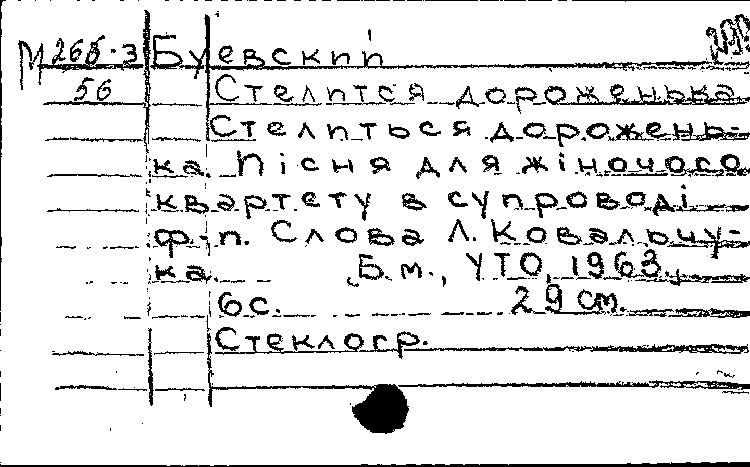 М 265-3 Буевский
56 Стелится дороженька
Стелиться дорожень-
ка. Пісня для жіночого
квартету в супроводі
ф.-п. Слова Л. Ковальчу-
ка. Б.м., УТО, 1963.
6с. 29 см.
Стеклогр.